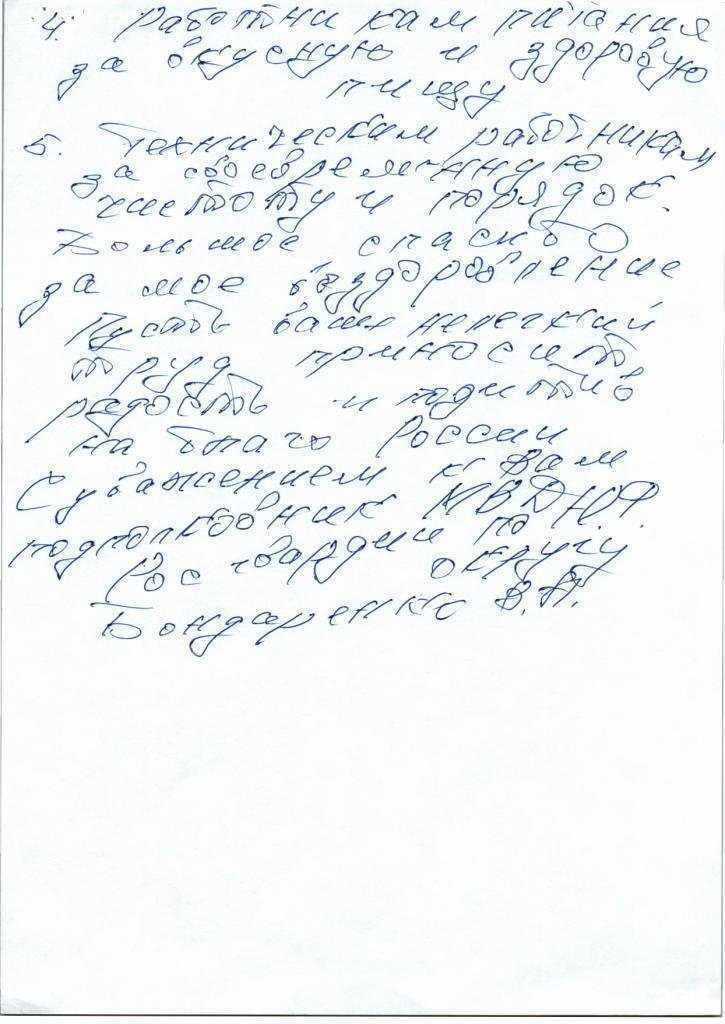 4. Работникам питания
за вкусную и здоровую
пищу
5. Техническим работникам
за своевременную
чистоту и порядок.
Большое спасибо
за мое выздоровление
Пусть ваш нелегкий
труд приносит
радость и позитив
на благо России
С уважением к Вам
подполковник МВД
Росгвардии по
округу
Бондаренко В.П.